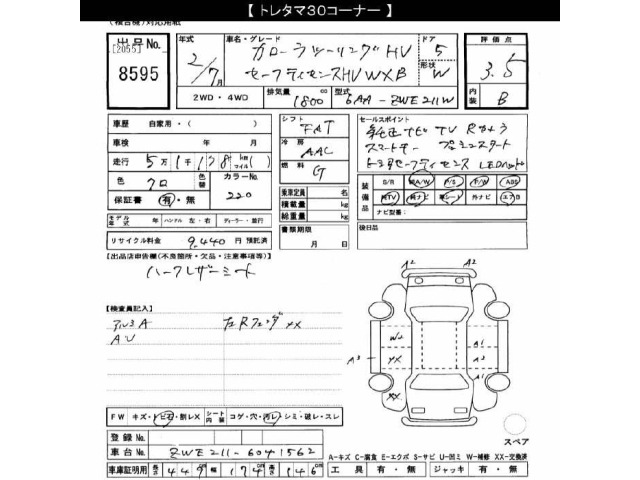 【 トレタマ30コーナー 】
(複合機)対応用紙
出品No. [2055] 8595
年式 2/7月 車名・グレード カローラツーリングHV セーフティセンスHV WXB ドア 5 形状 W 評価点 3.5
2WD・4WD 排気量 1800 cc 型式 6AA-ZWE211W 内装 B
車歴 自家用・( ) シフト FAT セールスポイント
車検 年 月 冷房 AAC 純正ナビ TV Rカメラ
走行 5万1千178 km(マイル) 燃料 G スマートキー プッシュスタート
トヨタセーフティセンス LEDヘッド
色 クロ 色替 カラーNo. 220
保証書 有・無
乗車定員 名
積載量 kg
総重量 kg
装備品 S/R 純A/W P/S P/W ABS
純TV 純ナビ 革シート 外ナビ エアB
ナビ型番:
モデル年式 年 ハンドル 左・右 ディーラー・並行
書類期限 月 日
後日品
リサイクル料金 9,440円 預託済
【出品店申告欄(不良箇所・欠品・注意事項等)】
ハーフレザーシート
【検査員記入】
アルミA 左Rフェンダ XX
AU
A2 A2
W2 A1
A3 XX A3
A1
XX
FW キズ・トビ石・割レX シート内装 コゲ・穴・汚レ・シミ・破レ・スレ
スペア
登録No.
車台No. ZWE211-6041562
A-キズ C-腐食 E-エクボ S-サビ U-凹ミ W-補修 XX-交換済
車庫証明用 長さ 449cm 幅 174cm 高さ 146cm 工具 有・無 ジャッキ 有・無